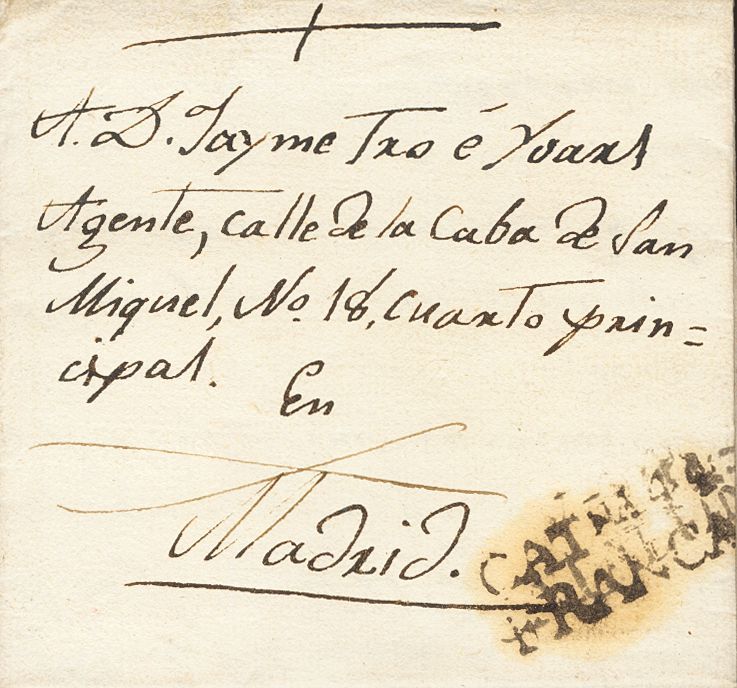 A. D. Jayme Tro é Yvarl
Agente, calle de la Caba de San
Miguel, No. 18, cuarto prin=
cipal.
En
Madrid.
FRANCA